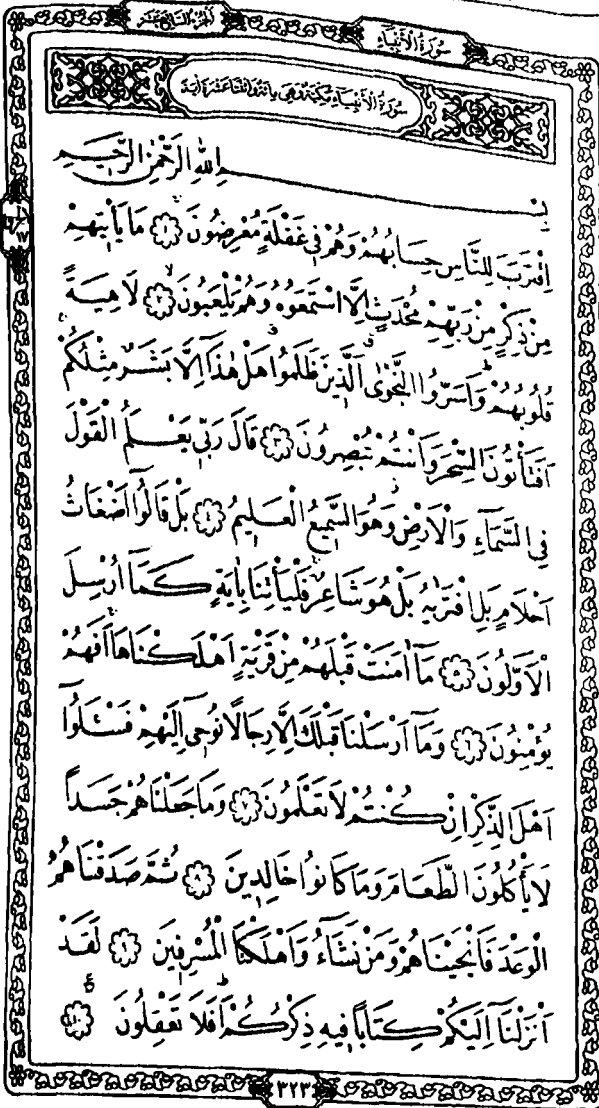 سُورَةُ الْأَنْبِيَاءِ
اَلْجُزْءُ السَّابِعَ عَشَرَ
سُورَةُ الْأَنْبِيَاءِ مَكِّيَّةٌ وَهِيَ مِائَةٌ وَاثْنَتَا عَشْرَةَ اٰيَةً
بِسْمِ اللهِ الرَّحْمٰنِ الرَّحِيمِ
اِقْتَرَبَ لِلنَّاسِ حِسَابُهُمْ وَهُمْ فِي غَفْلَةٍ مُعْرِضُونَ ﴿١﴾ مَا يَأْتِيهِمْ
مِنْ ذِكْرٍ مِنْ رَبِّهِمْ مُحْدَثٍ اِلَّا اسْتَمَعُوهُ وَهُمْ يَلْعَبُونَ ﴿٢﴾ لَاهِيَةً
قُلُوبُهُمْ وَاَسَرُّوا النَّجْوَى الَّذِينَ ظَلَمُوا هَلْ هٰذَٓا اِلَّا بَشَرٌ مِثْلُكُمْ
اَفَتَأْتُونَ السِّحْرَ وَاَنْتُمْ تُبْصِرُونَ ﴿٣﴾ قَالَ رَبِّي يَعْلَمُ الْقَوْلَ
فِي السَّمَٓاءِ وَالْاَرْضِ وَهُوَ السَّمِيعُ الْعَلِيمُ ﴿٤﴾ بَلْ قَالُٓوا اَضْغَاثُ
اَحْلَامٍ بَلِ افْتَرٰيهُ بَلْ هُوَ شَاعِرٌ فَلْيَأْتِنَا بِاٰيَةٍ كَمَٓا اُرْسِلَ
الْاَوَّلُونَ ﴿٥﴾ مَٓا اٰمَنَتْ قَبْلَهُمْ مِنْ قَرْيَةٍ اَهْلَكْنَاهَا اَفَهُمْ
يُؤْمِنُونَ ﴿٦﴾ وَمَٓا اَرْسَلْنَا قَبْلَكَ اِلَّا رِجَالًا نُوحِٓي اِلَيْهِمْ فَسْـَٔلُٓوا
اَهْلَ الذِّكْرِ اِنْ كُنْتُمْ لَا تَعْلَمُونَ ﴿٧﴾ وَمَا جَعَلْنَاهُمْ جَسَدًا
لَا يَأْكُلُونَ الطَّعَامَ وَمَا كَانُوا خَالِدِينَ ﴿٨﴾ ثُمَّ صَدَقْنَاهُمُ
الْوَعْدَ فَاَنْجَيْنَاهُمْ وَمَنْ نَشَٓاءُ وَاَهْلَكْنَا الْمُسْرِفِينَ ﴿٩﴾ لَقَدْ
اَنْزَلْنَٓا اِلَيْكُمْ كِتَابًا فِيهِ ذِكْرُكُمْ اَفَلَا تَعْقِلُونَ ﴿١٠﴾
٣٢٣